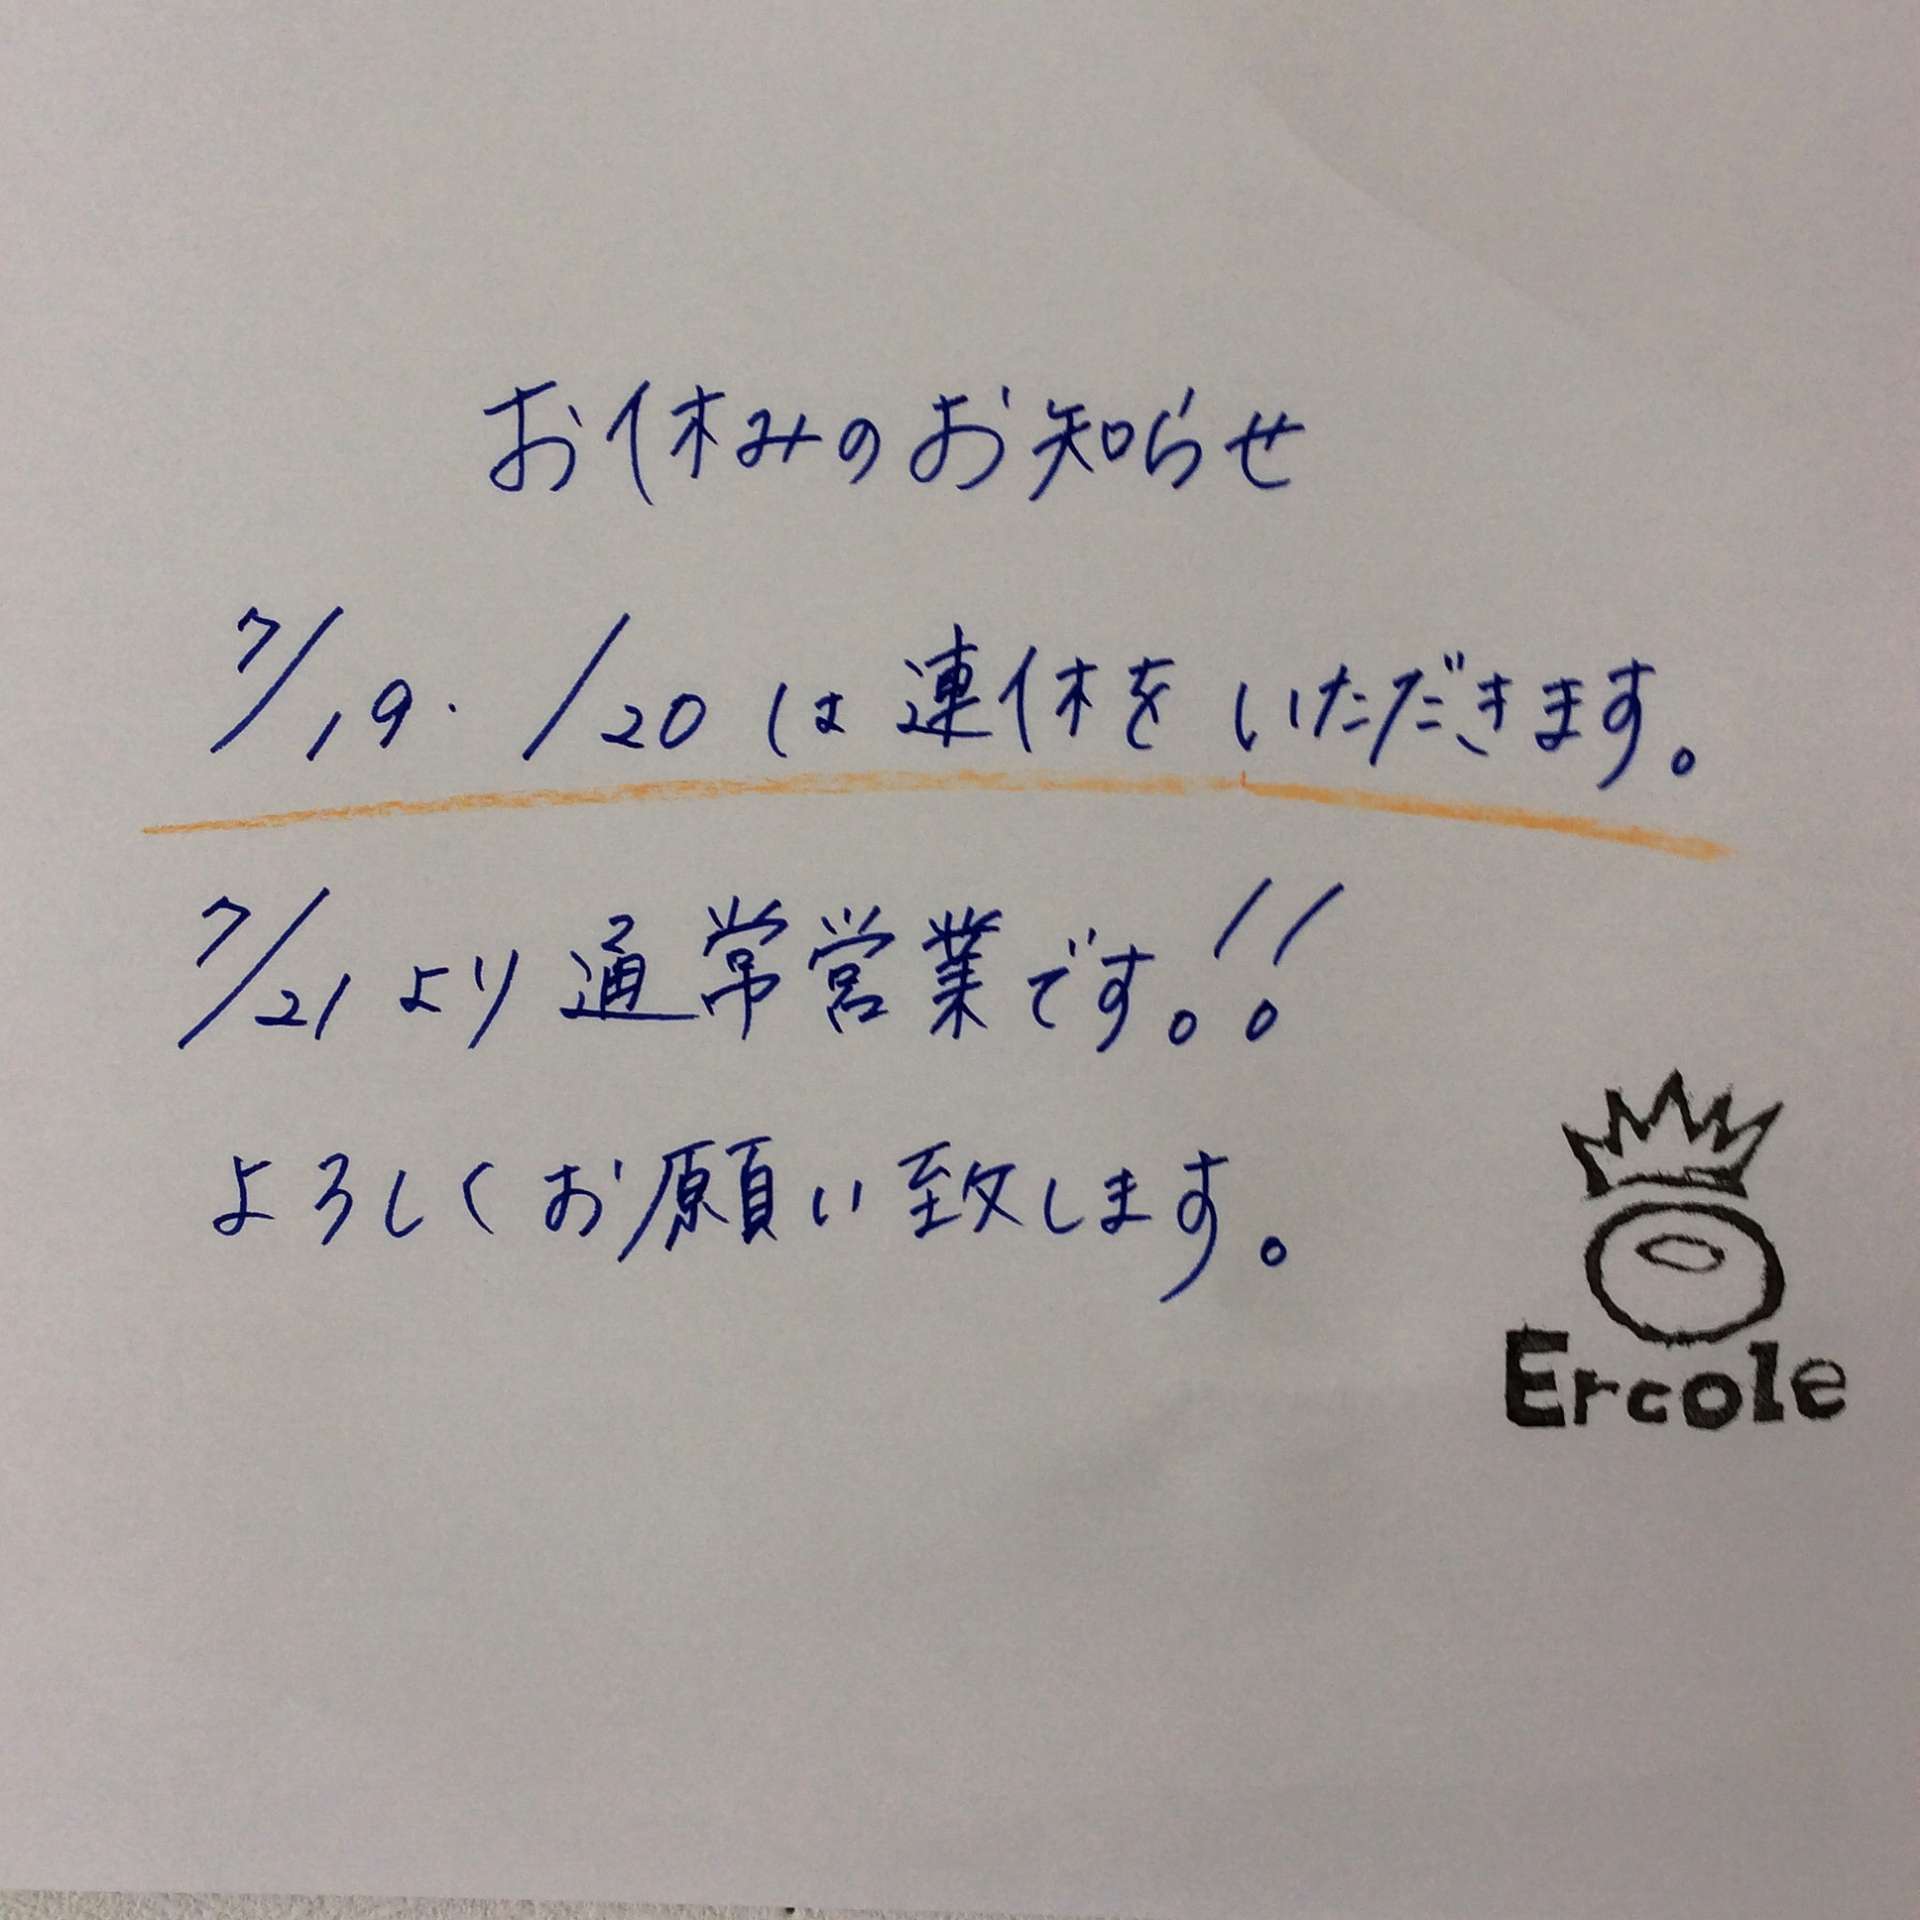 お休みのお知らせ
7/19・/20は連休をいただきます。
7/21より通常営業です。!!
よろしくお願い致します。
Ercole